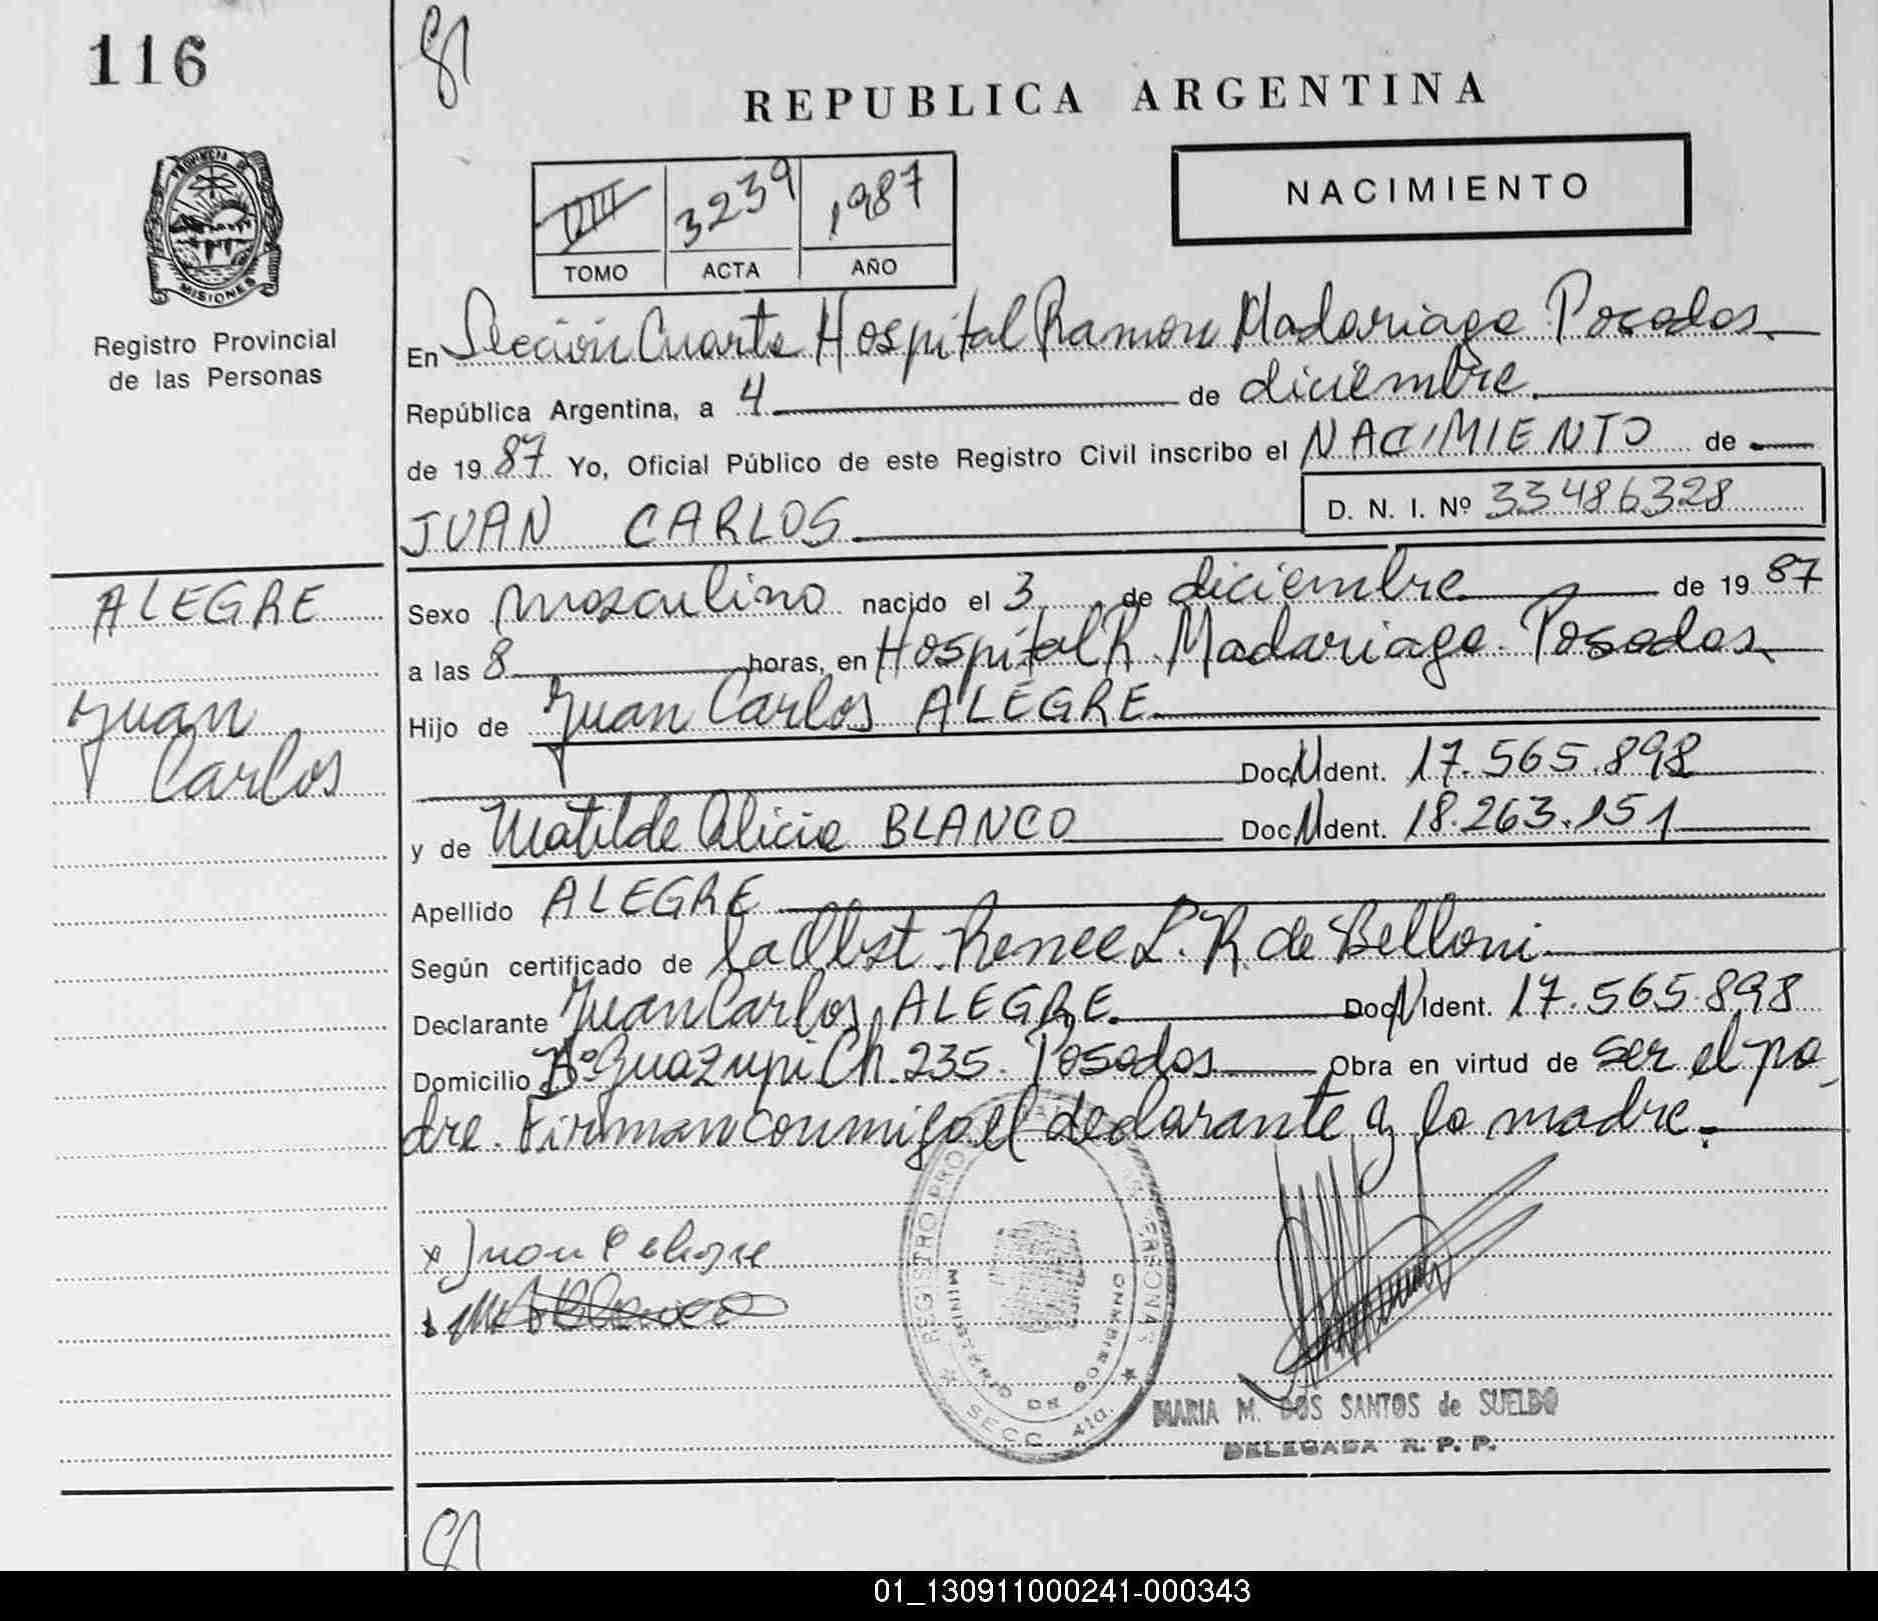 116
REPUBLICA ARGENTINA
PROVINCIA DE
MISIONES
Registro Provincial
de las Personas
VIII 3239 1987
TOMO ACTA AÑO
NACIMIENTO
En Sección Cuarta Hospital Ramon Madariaga Posadas
República Argentina, a 4 de diciembre
de 1987 Yo, Oficial Público de este Registro Civil inscribo el NACIMIENTO de
JUAN CARLOS
D. N. I. Nº 33486328
ALEGRE
Juan
Carlos
Sexo masculino nacido el 3 de diciembre de 1987
a las 8 horas, en Hospital R. Madariaga. Posadas
Hijo de Juan Carlos ALEGRE
Doc. Ident. 17.565.898
y de Matilde Alicia BLANCO Doc. Ident. 18.263.151
Apellido ALEGRE
Según certificado de la Obst. Renee L. R. de Belloni
Declarante Juan Carlos ALEGRE Doc. Ident. 17.565.898
Domicilio Bº Guazupi Ch. 235. Posadas Obra en virtud de ser el pa
dre. Firman conmigo el declarante y la madre.
x Juan C Alegre
REGISTRO PRO PERSONAS
MINISTERIO DE GOBIERNO
SECC. 4ta.
MARIA M. DOS SANTOS de SUELDO
DELEGADA R. P. P.
01_130911000241-000343